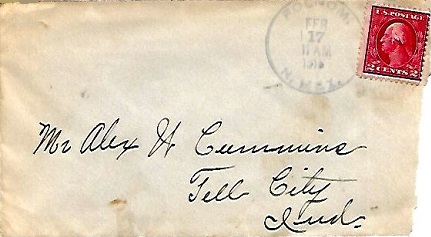 FEB
17
AM
N. MEX.
U.S. POSTAGE
2 CENTS 2
Mr Alex H Cummins
Tell City
Ind.